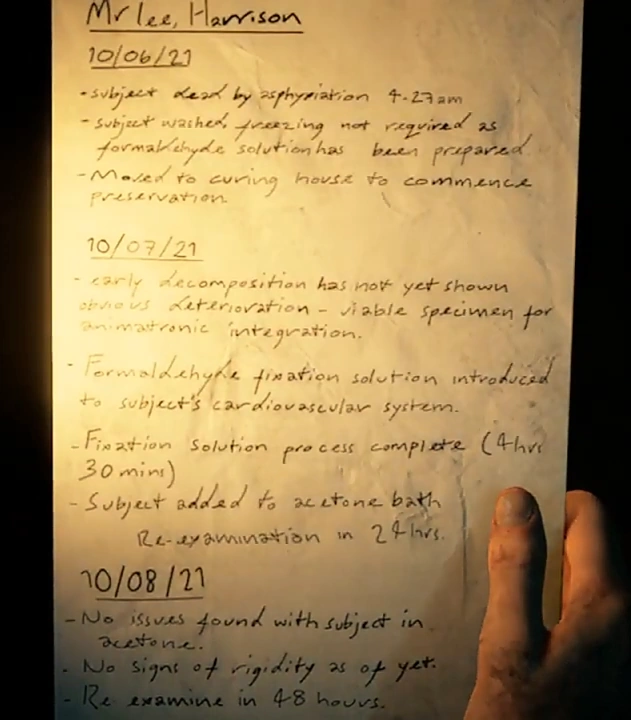 Mr lee, Harrison
10/06/21
- subject dead by asphyxiation 4.27am
- subject washed freezing not required as
formaldehyde solution has been prepared.
- Moved to curing house to commence
preservation.
10/07/21
- early decomposition has not yet shown
obvious deterioration - viable specimen for
animatronic integration.
- Formaldehyde fixation solution introduced
to subject's cardiovascular system.
- Fixation solution process complete (4hrs
30 mins)
- Subject added to acetone bath
Re-examination in 24hrs.
10/08/21
- No issues found with subject in
acetone.
- No signs of rigidity as of yet.
- Re examine in 48 hours.